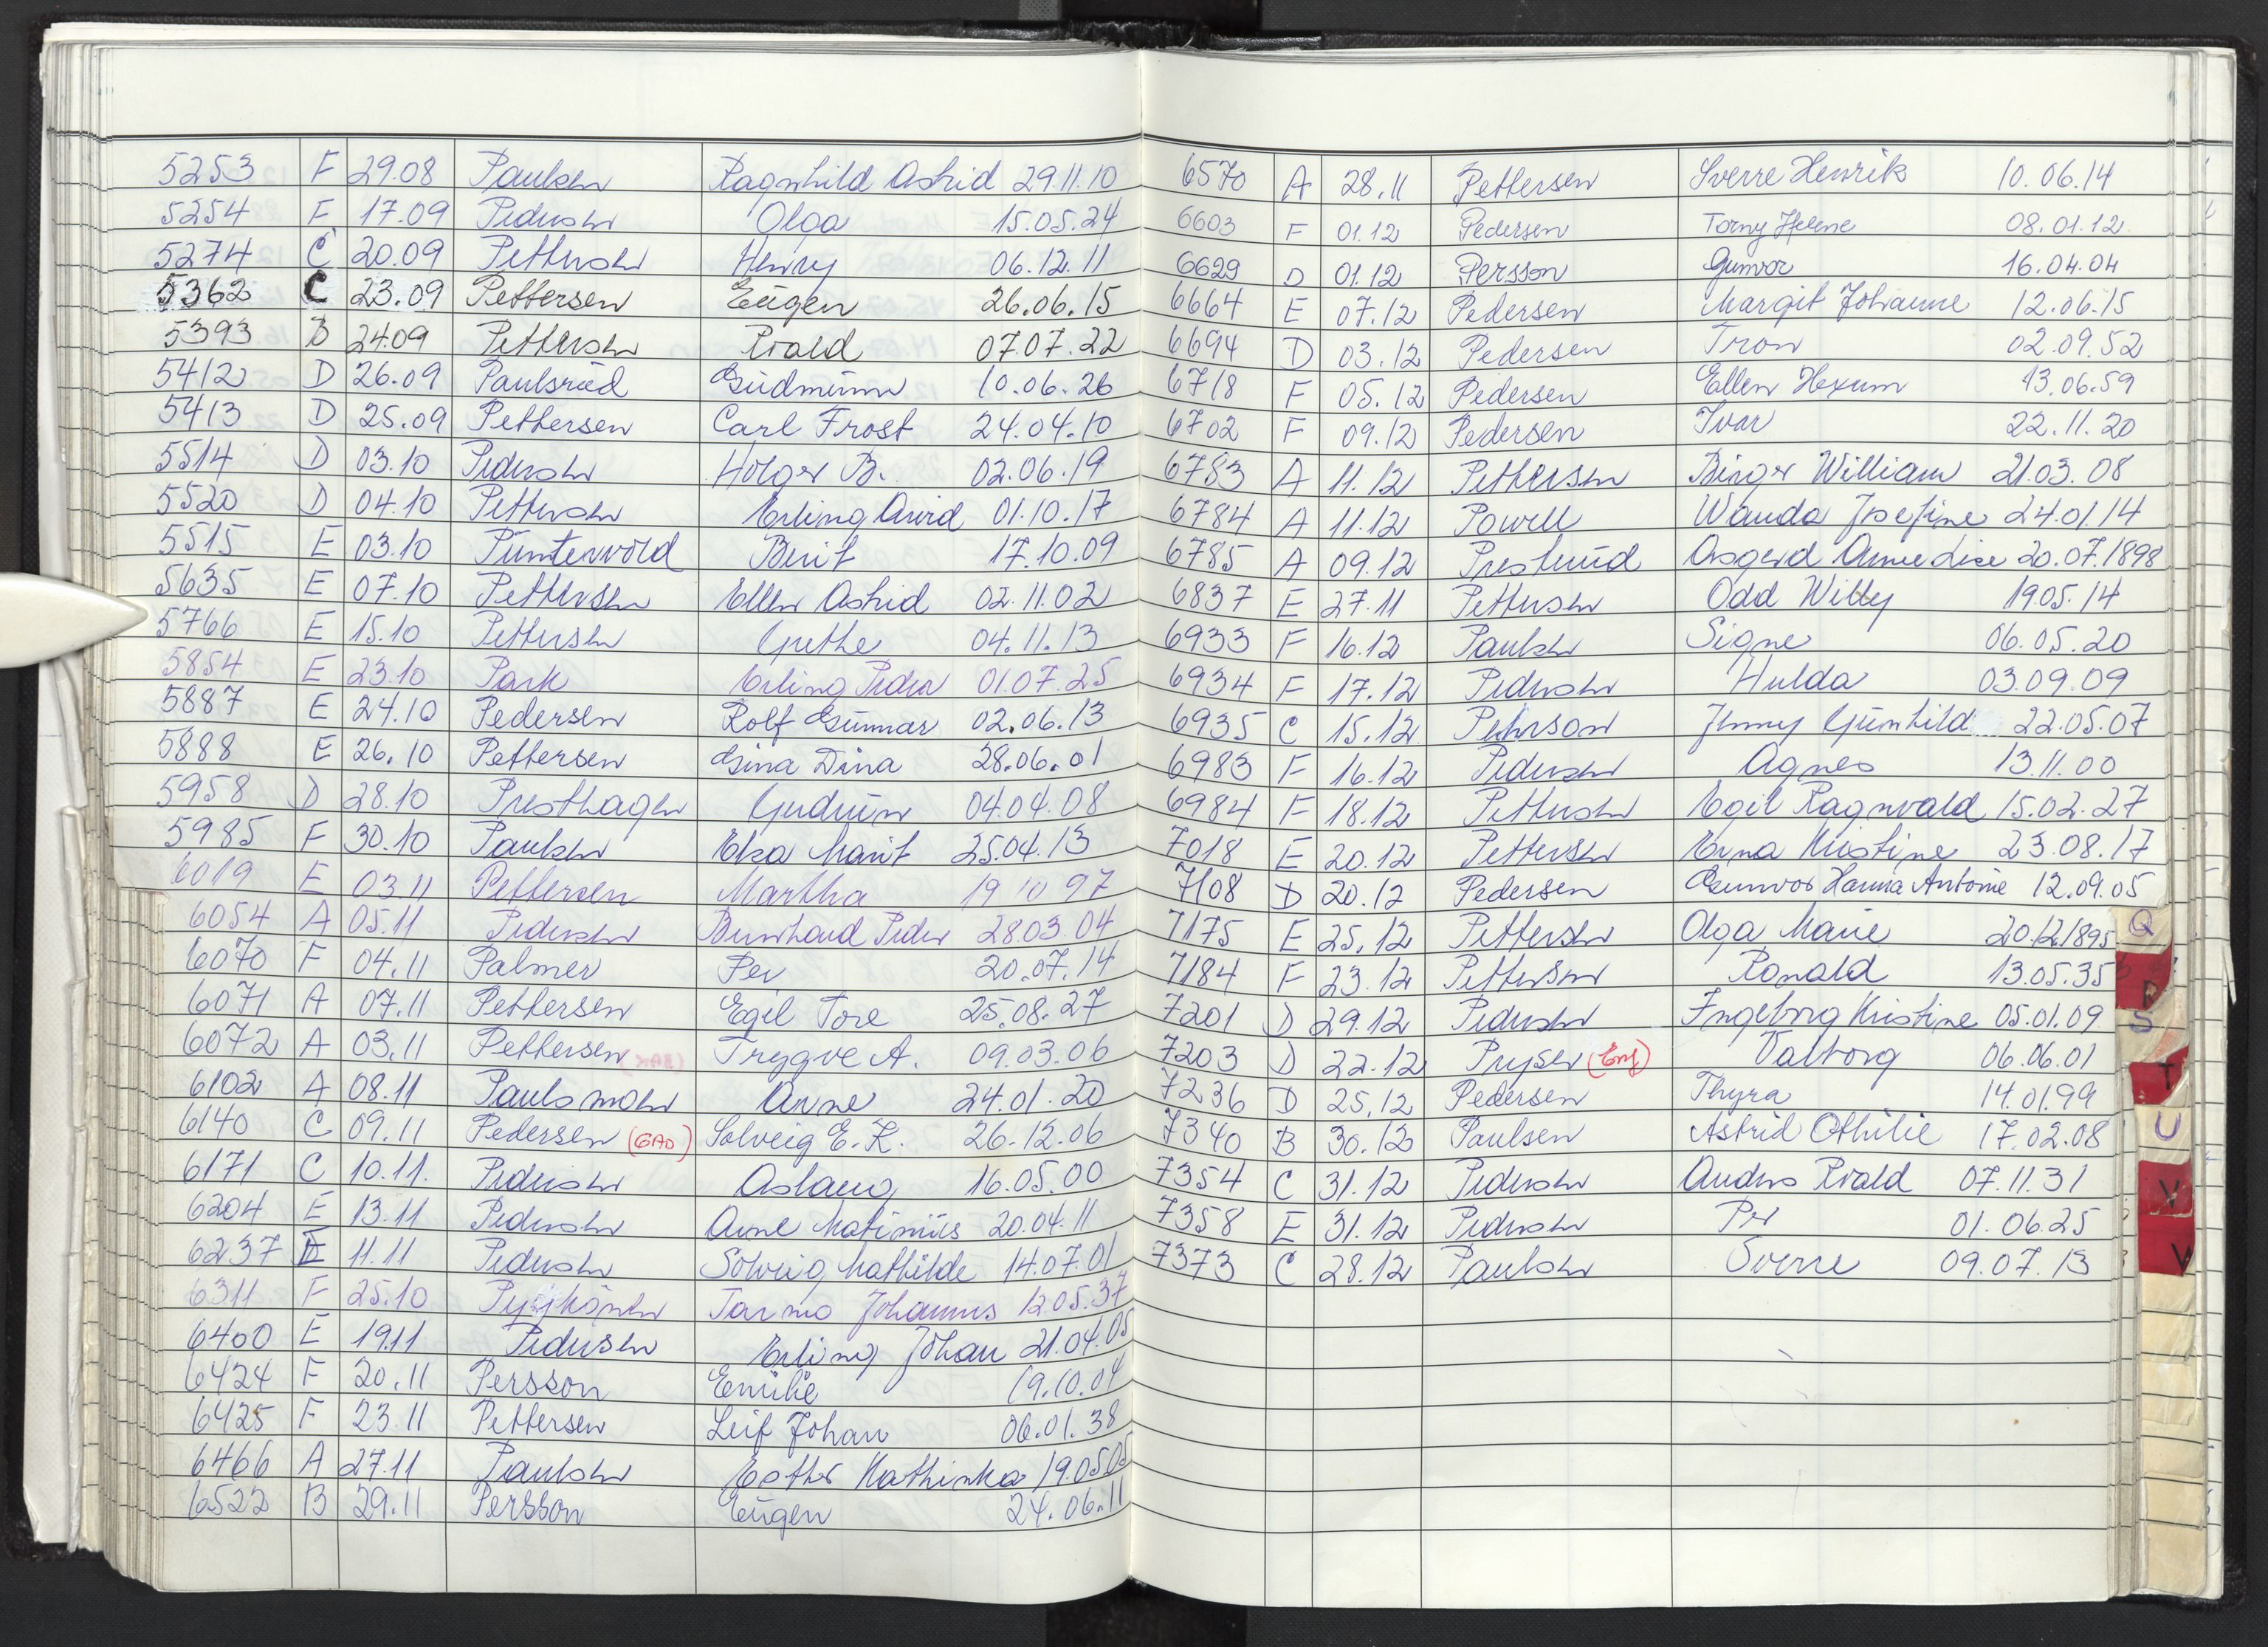 5253 F 29.08 Paulsen Ragnhild Astrid 29.11.10
5254 F 17.09 Pedersen Olga 15.05.24
5274 C 20.09 Pettersen Henry 06.12.11
5362 C 23.09 Pettersen Eugen 26.06.15
5393 B 24.09 Pettersen Roald 07.07.22
5412 D 26.09 Paulsrud Gudmunn 10.06.26
5413 D 25.09 Pettersen Carl Frost 24.04.10
5514 D 03.10 Pedersen Holger B. 02.06.19
5520 D 04.10 Pettersen Erling Arvid 01.10.17
5515 E 03.10 Puntervold Berit 17.10.09
5635 E 07.10 Pettersen Ellen Astrid 02.11.02
5766 E 15.10 Pettersen Grethe 04.11.13
5854 E 23.10 Park Erling Peder 01.07.25
5887 E 24.10 Pedersen Rolf Gunnar 02.06.13
5888 E 26.10 Pettersen Gina Dina 28.06.01
5958 D 28.10 Presthagen Gudrun 04.04.08
5985 F 30.10 Paulsen Elsa Marit 25.04.13
6019 E 03.11 Pettersen Martha 19 10 97
6054 A 05.11 Pedersen Bernhard Peder 28.03.04
6070 F 04.11 Palmer Per 20.07.14
6071 A 07.11 Pettersen Egil Tore 25.08.27
6072 A 03.11 Pettersen Trygve A. 09.03.06
6102 A 08.11 Paulsmoen Arne 24.01.20
6140 C 09.11 Pedersen (GAD) Solveig E. K. 26.12.06
6171 C 10.11. Pedersen Aslaug 16.05.00
6204 E 13.11 Pedersen Arne Matinius 20.04.11
6237 E 11.11 Pedersen Solveig Mathilde 14.07.01
6311 F 25.10 Tarmo Johannes 12.05.37
6400 E 19.11 Pedersen Erling Johan 21.04.05
6424 F 20.11 Persson Emilie 19.10.04
6425 F 23.11 Pettersen Leif Johan 06.01.38
6466 A 27.11 Paulsen Esther Kathinka 19.05.05
6522 B 29.11 Persson Eugen 24.06.11
6570 A 28.11 Pettersen Sverre Henrik 10.06.14
6603 F 01.12 Pedersen Torny Helene 08.01.12
6629 D 01.12 Persson Gunvor 16.04.04
6664 E 07.12 Pedersen Margit Johanne 12.06.15
6694 D 03.12 Pedersen Tron 02.09.52
6718 F 05.12 Pedersen Ellen Hexum 13.06.59
6702 F 09.12 Pedersen Ivar 22.11.20
6783 A 11.12 Pettersen Birger William 21.03.08
6784 A 11.12 Powell Wanda Josefine 24.01.14
6785 A 09.12 Prestrud Asgerd Anne Lise 20.07.1898
6837 E 27.11 Pettersen Odd Willy 19.05.14
6933 F 16.12 Paulsen Signe 06.05.20
6934 F 17.12 Pedersen Hulda 03.09.09
6935 C 15.12 Pehrson Jenny Gunhild 22.05.07
6983 F 16.12 Pedersen Agnes 13.11.00
6984 F 18.12 Pettersen Egil Ragnvald 15.02.27
7018 E 20.12 Pettersen Erna Kristine 23.08.17
7108 D 20.12 Pedersen Gunvor Hanna Antonie 12.09.05
7175 E 25.12 Pettersen Olga Marie 20.12.1895
7184 F 23.12 Pettersen Ronald 13.05.35
7201 D 29.12 Pedersen Ingeborg Kristine 05.01.09
7203 D 22.12 Pryser Valborg 06.06.01
7236 D 25.12 Pedersen Thyra 14.01.99
7340 B 30.12 Paulsen Astrid Othilie 17.02.08
7354 C 31.12 Pedersen Anders Roald 07.11.31
7358 E 31.12 Pedersen Per 01.06.25
7373 C 28.12 Paulsen Sverre 09.07.13
Q
R
S
T
U
V